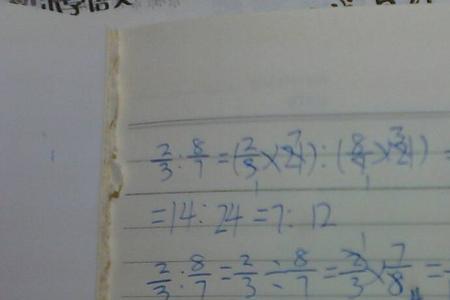 2/3 : 8/7 = (2/3 × 21) : (8/7 × 21) =
= 14 : 24 = 7 : 12
2/3 : 8/7 = 2/3 ÷ 8/7 = 2/3 × 7/8 =